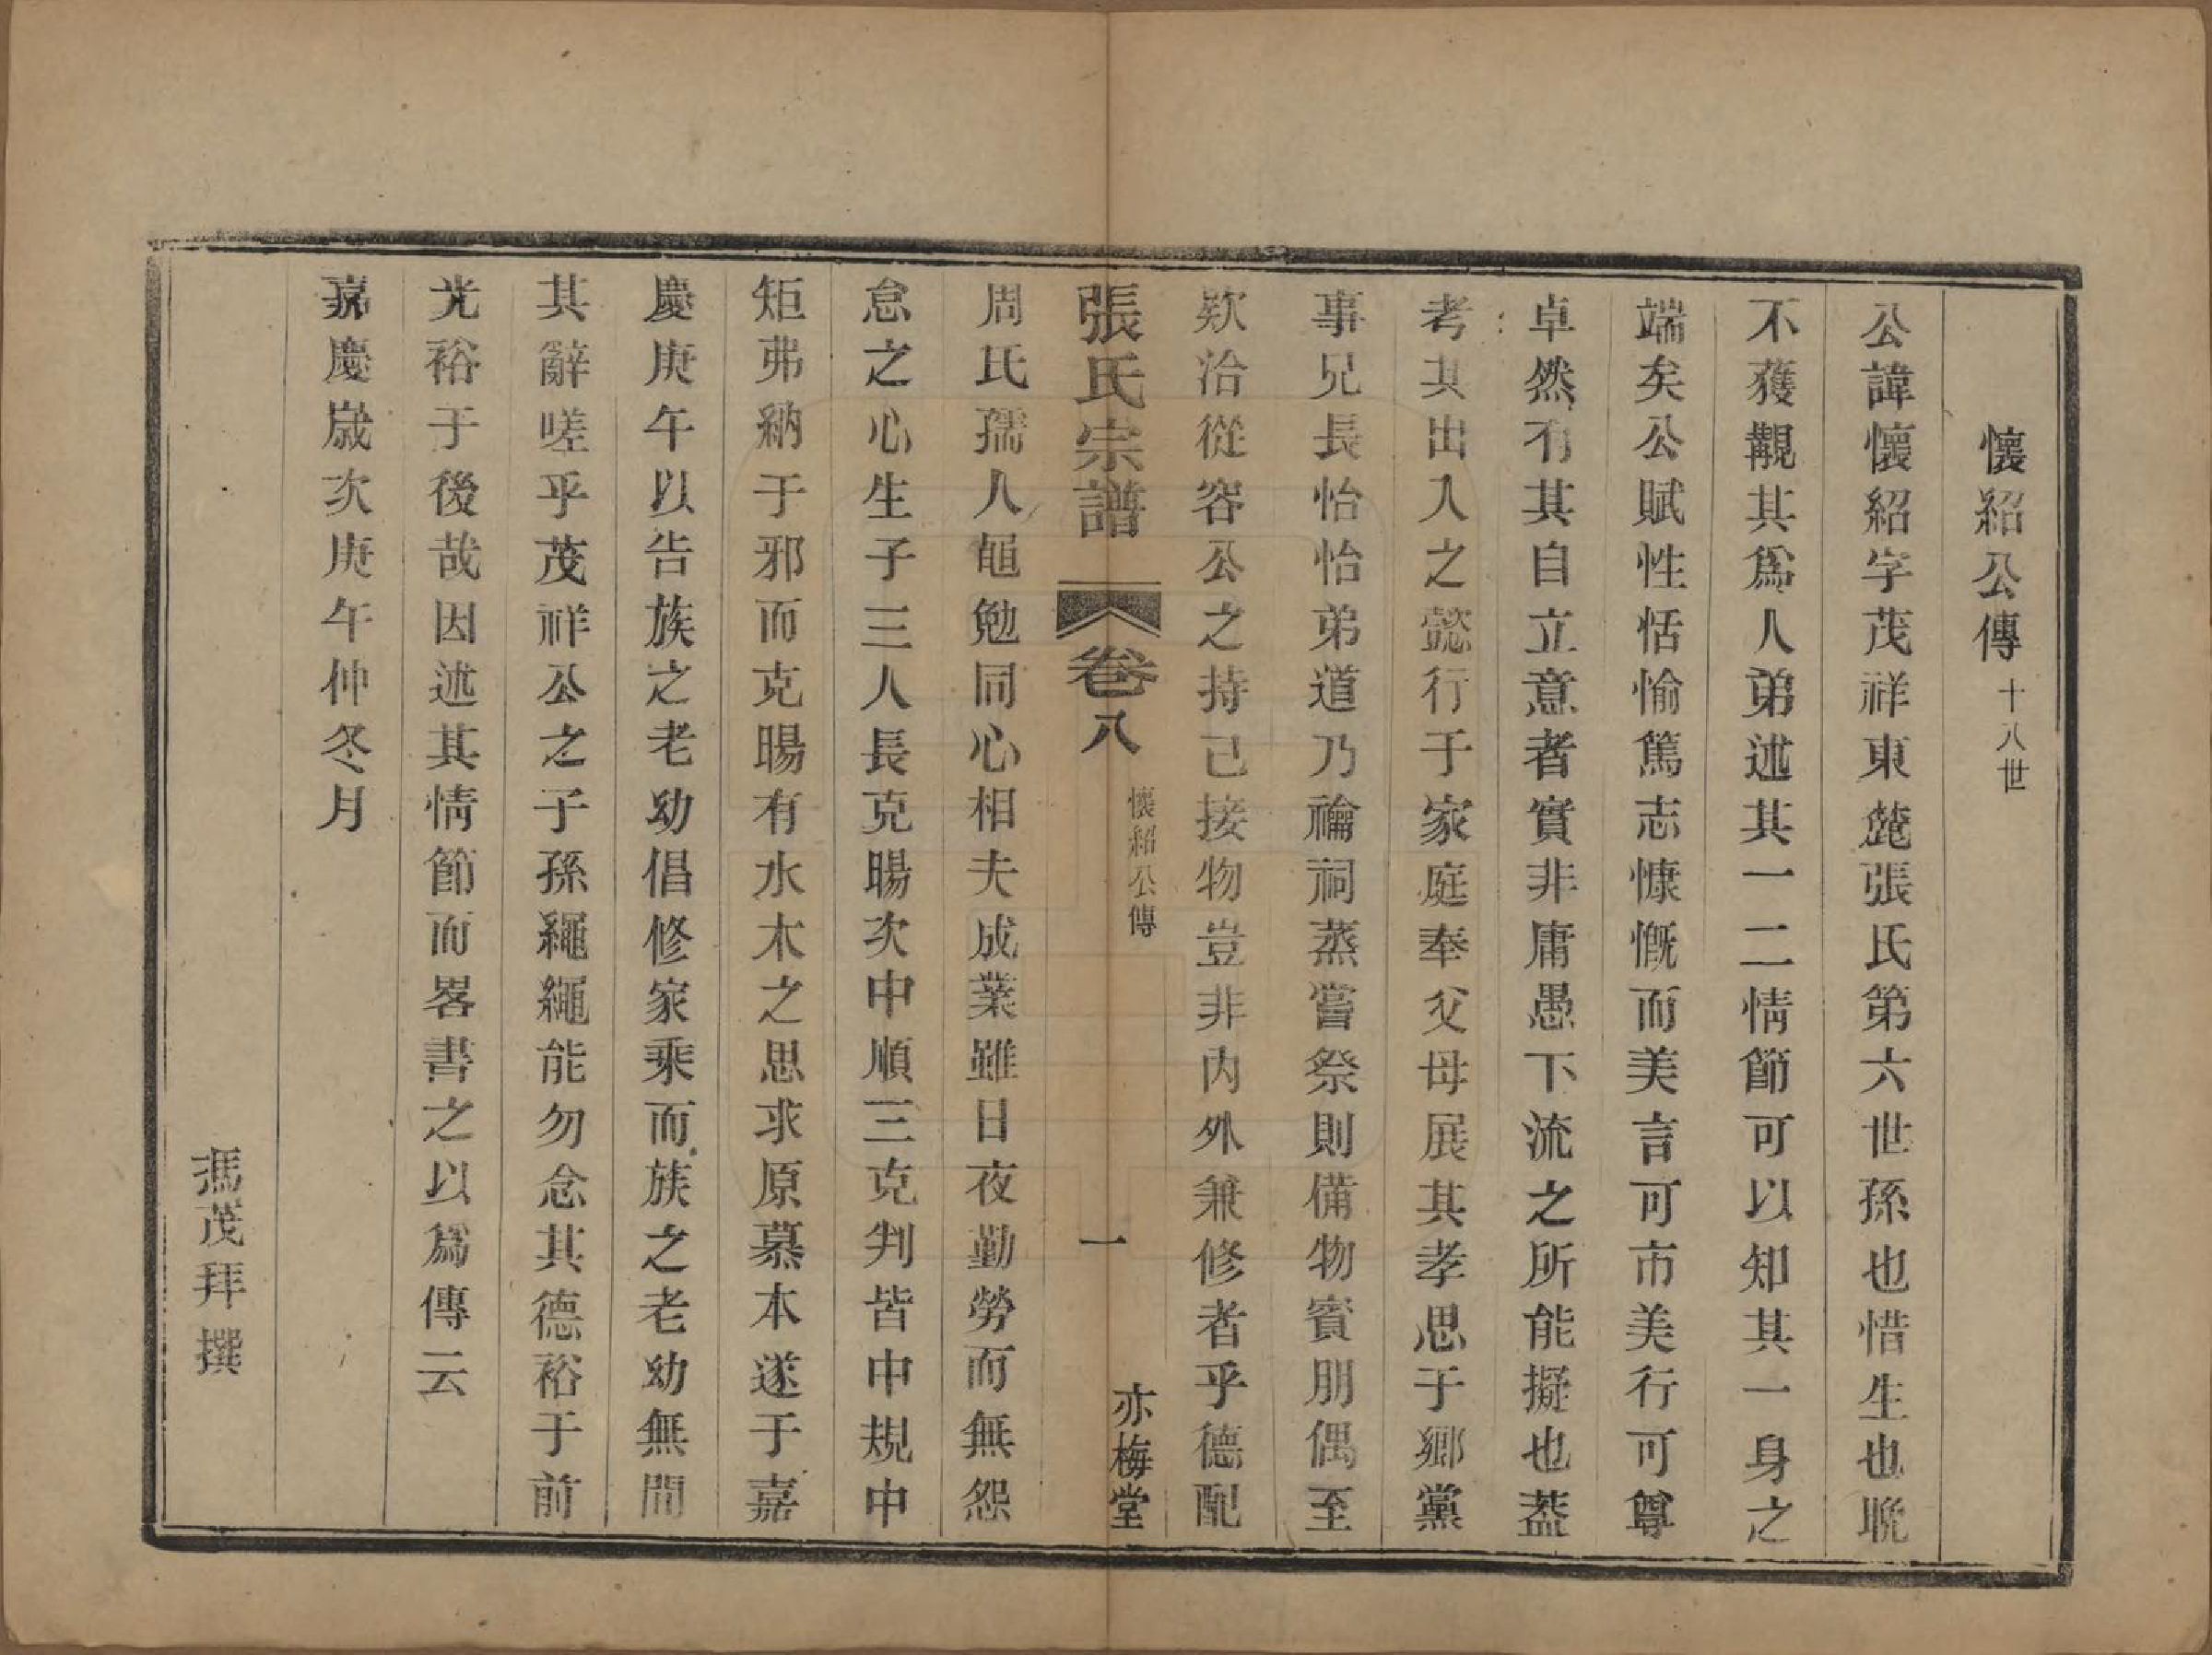 懷紹公傳 十八世
公諱懷紹字茂祥東麓張氏第六世孫也惜生也晩
不獲覯其爲人弟述其一二情節可以知其一身之
端矣公賦性恬愉篤志慷慨而美言可市美行可尊
卓然有其自立意者實非庸愚下流之所能擬也葢
考其出入之懿行于家庭奉父母展其孝思于鄉黨
事兄長怡怡弟道乃禴祠蒸嘗祭則備物賓朋偶至
欵洽從容公之持己接物豈非内外兼修者乎德配
張氏宗譜 卷八 懷紹公傳 一 亦梅堂
周氏孺人黽勉同心相夫成業雖日夜勤勞而無怨
怠之心生子三人長克暘次中順三克判皆中規中
矩弗納于邪而克暘有水木之思求原慕本遂于嘉
慶庚午以告族之老幼倡修家乘而族之老幼無間
其辭嗟乎茂祥公之子孫繩繩能勿念其德裕于前
光裕于後哉因述其情節而畧書之以爲傳云
嘉慶歲次庚午仲冬月
馮茂拜撰